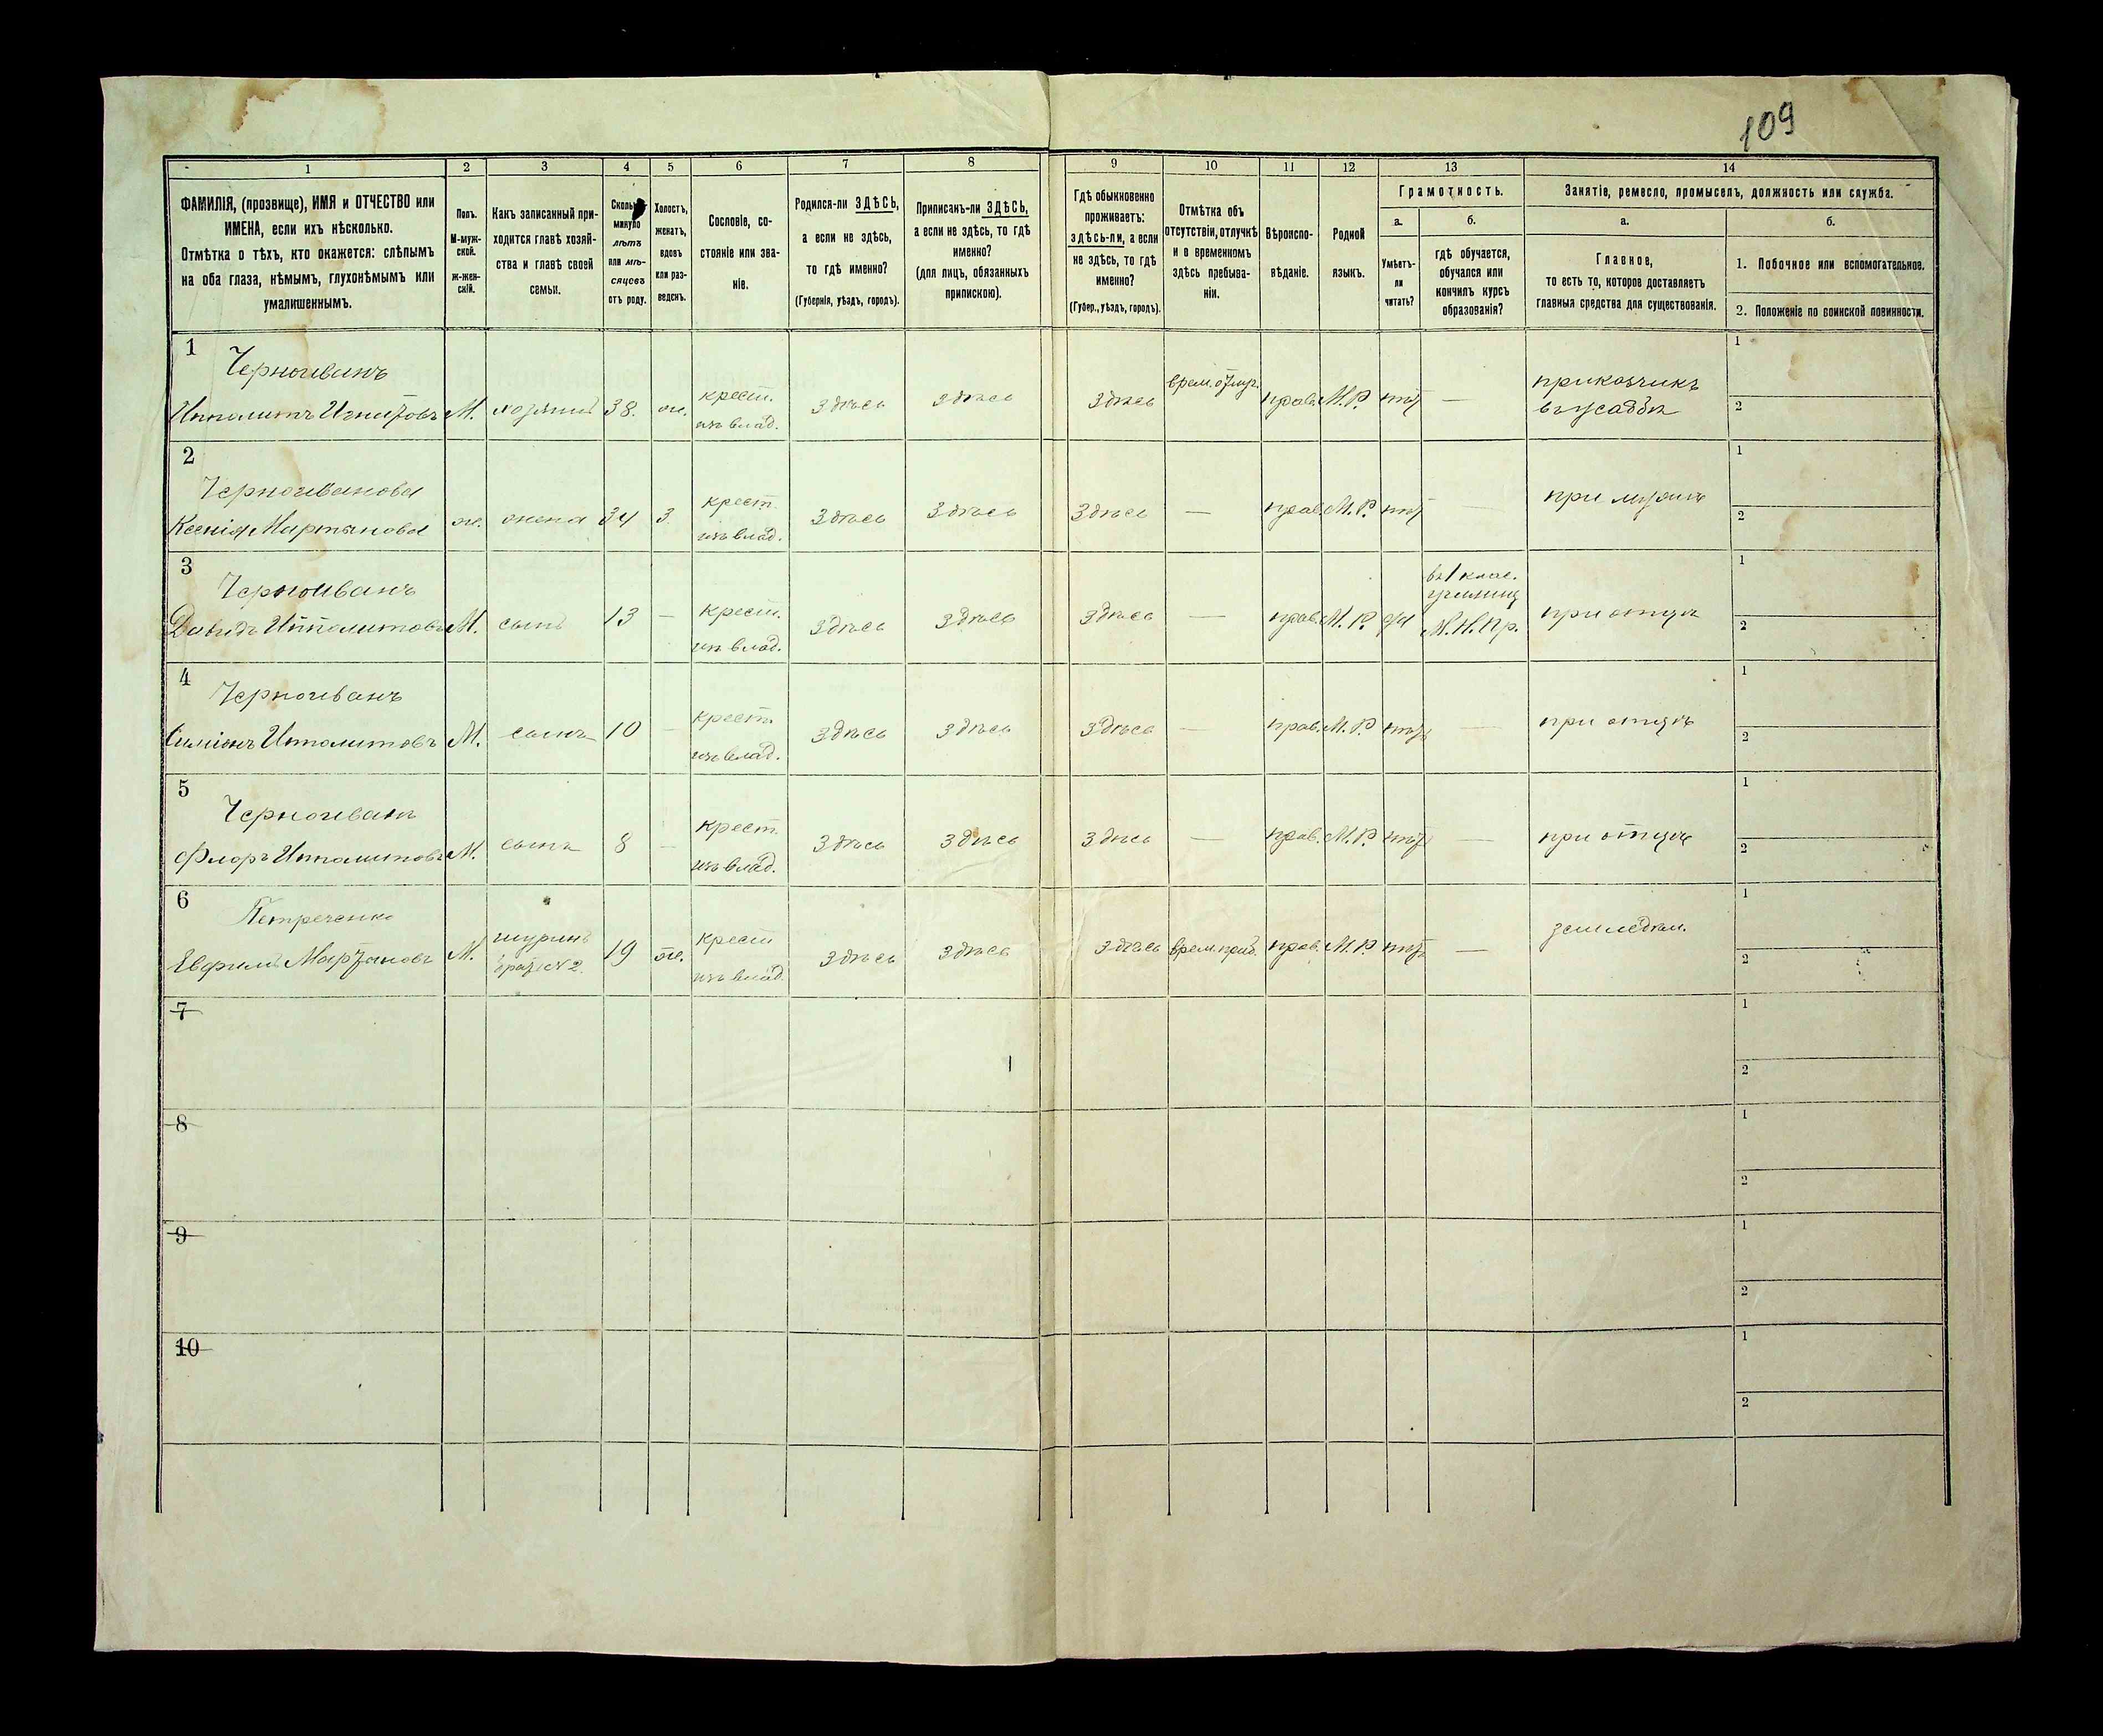 109
1 2 3 4 5 6 7 8 9 10 11 12 13 14
ФАМИЛІЯ, (прозвище), ИМЯ и ОТЧЕСТВО или
ИМЕНА, если ихъ нѣсколько.
Отмѣтка о тѣхъ, кто окажется: слѣпымъ
на оба глаза, нѣмымъ, глухонѣмымъ или
умалишеннымъ.
Полъ.
М-муж-
ской.
ж-жен-
скій.
Какъ записанный при-
ходится главѣ хозяй-
ства и главѣ своей
семьи.
Сколько
минуло
лѣтъ
или мѣ-
сяцевъ
отъ роду.
Холостъ,
женатъ,
вдовъ
или раз-
веденъ.
Сословіе, со-
стояніе или зва-
ніе.
Родился-ли ЗДѢСЬ,
а если не здѣсь,
то гдѣ именно?
(Губернія, уѣздъ, городъ).
Приписанъ-ли ЗДѢСЬ,
а если не здѣсь, то гдѣ
именно?
(для лицъ, обязанныхъ
припискою).
Гдѣ обыкновенно
проживаетъ:
здѣсь-ли, а если
не здѣсь, то гдѣ
именно?
(Губер., уѣздъ, городъ).
Отмѣтка объ
отсутствіи, отлучкѣ
и о временномъ
здѣсь пребыва-
ніи.
Вѣроиспо-
вѣданіе.
Родной
языкъ.
Грамотность.
а.
Умѣетъ-
ли
читать?
б.
гдѣ обучается,
обучался или
кончилъ курсъ
образованія?
Занятіе, ремесло, промыселъ, должность или служба.
а.
Главное,
то есть то, которое доставляетъ
главныя средства для существованія.
б.
1. Побочное или вспомогательное.
2. Положеніе по воинской повинности.
1
Черноиванъ
Ипполитъ Игнатовъ М. хозяинъ 38. ж. крест. изъ влад. здѣсь здѣсь здѣсь врем. отлуч. прав. М.Р. нѣтъ — приказчикъ
въ усадьбѣ
1
2
2
Черноиванова
Ксенія Мартынова ж. жена 34 з. крест. изъ влад. здѣсь здѣсь здѣсь — прав. М.Р. нѣтъ — при мужѣ
1
2
3
Черноиванъ
Давидъ Ипполитовъ М. сынъ 13 — крест. изъ влад. здѣсь здѣсь здѣсь — прав. М.Р. да въ 1 клас.
училищ
М.Н.Пр. при отцѣ
1
2
4
Черноиванъ
Симіонъ Ипполитовъ М. сынъ 10 — крест. изъ влад. здѣсь здѣсь здѣсь — прав. М.Р. нѣтъ — при отцѣ
1
2
5
Черноиванъ
Флоръ Ипполитовъ М. сынъ 8 — крест. изъ влад. здѣсь здѣсь здѣсь — прав. М.Р. нѣтъ — при отцѣ
1
2
6
Петреченко
Евфимъ Мартыновъ М. шуринъ
братъ №2. 19 ж. крест изъ влад. здѣсь здѣсь здѣсь прав. М.Р. нѣтъ — земледѣл.
1
2
7
1
2
8
1
2
9
1
2
10
1
2